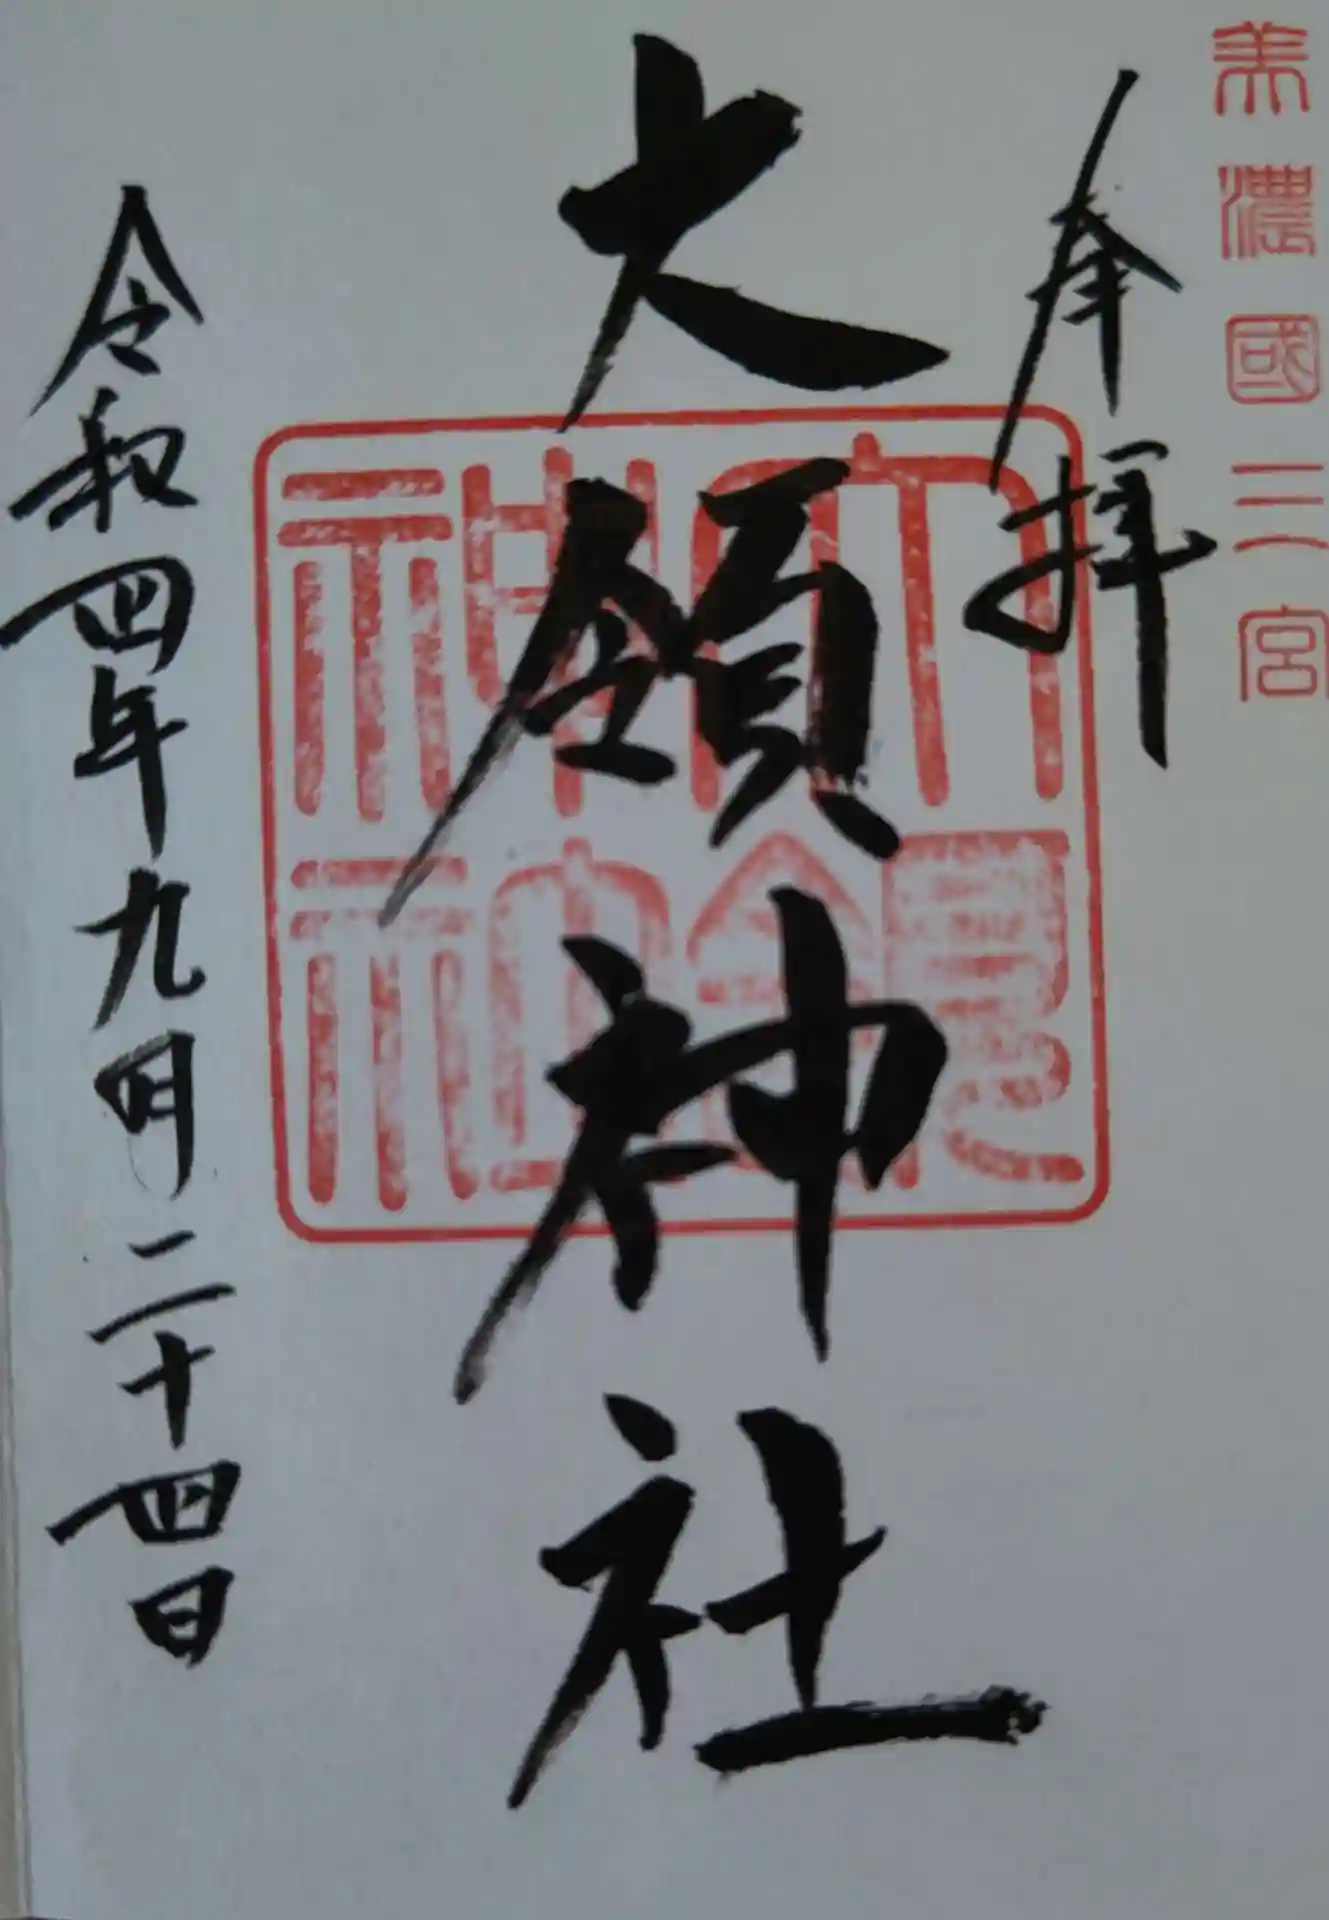 美濃國三宮
奉拝
大領神社
大領神社
令和四年九月二十四日